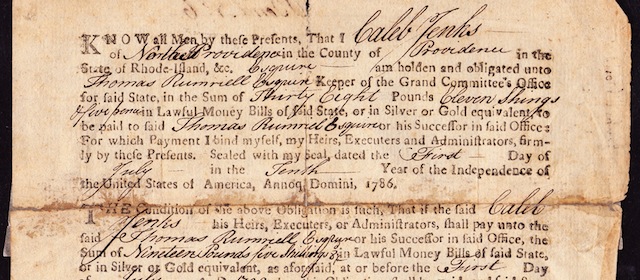 KNOW all Men by these Presents, That I Caleb Jenks
of North Providence in the County of Providence in the
State of Rhode-Island, &c. Esquire am holden and obligated unto
Thomas Rumreill Esquire Keeper of the Grand Committee's Office
for said State, in the Sum of Thirty Eight Pounds Eleven Shillings
& five pence in Lawful Money Bills of said State, or in Silver or Gold equivalent, to
be paid to said Thomas Rumreill Esquire or his Successor in said Office:
For which Payment I bind myself, my Heirs, Executers and Administrators, firm-
ly by these Presents. Sealed with my Seal, dated the First Day of
July in the Tenth Year of the Independence of
the United States of America, Annoq; Domini, 1786.
THE Condition of the above Obligation is such, That if the said Caleb
Jenks his Heirs, Executers, or Administrators, shall pay unto the
said Thomas Rumreill Esquire or his Successor in said Office, the
Sum of Nineteen Pounds five Shillings & in Lawful Money Bills of said State,
or in Silver or Gold equivalent, as aforesaid, at or before the First Day